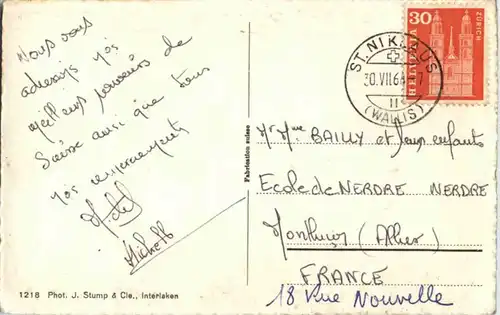 Nous vous
adressons nos
meilleurs souvenirs de
Suisse ainsi que tous
nos remerciements
Michel
Michelle
1218 Phot. J. Stump & Cie., Interlaken
Fabrication suisse
30
HELVETIA
ZÜRICH
ST. NIKLAUS
30.VII.64
(WALLIS)
Mr Mme BAILLY et leurs enfants
Ecole de NERDRE NERDRE
Montluçon (Allier)
FRANCE
18 Rue Nouvelle